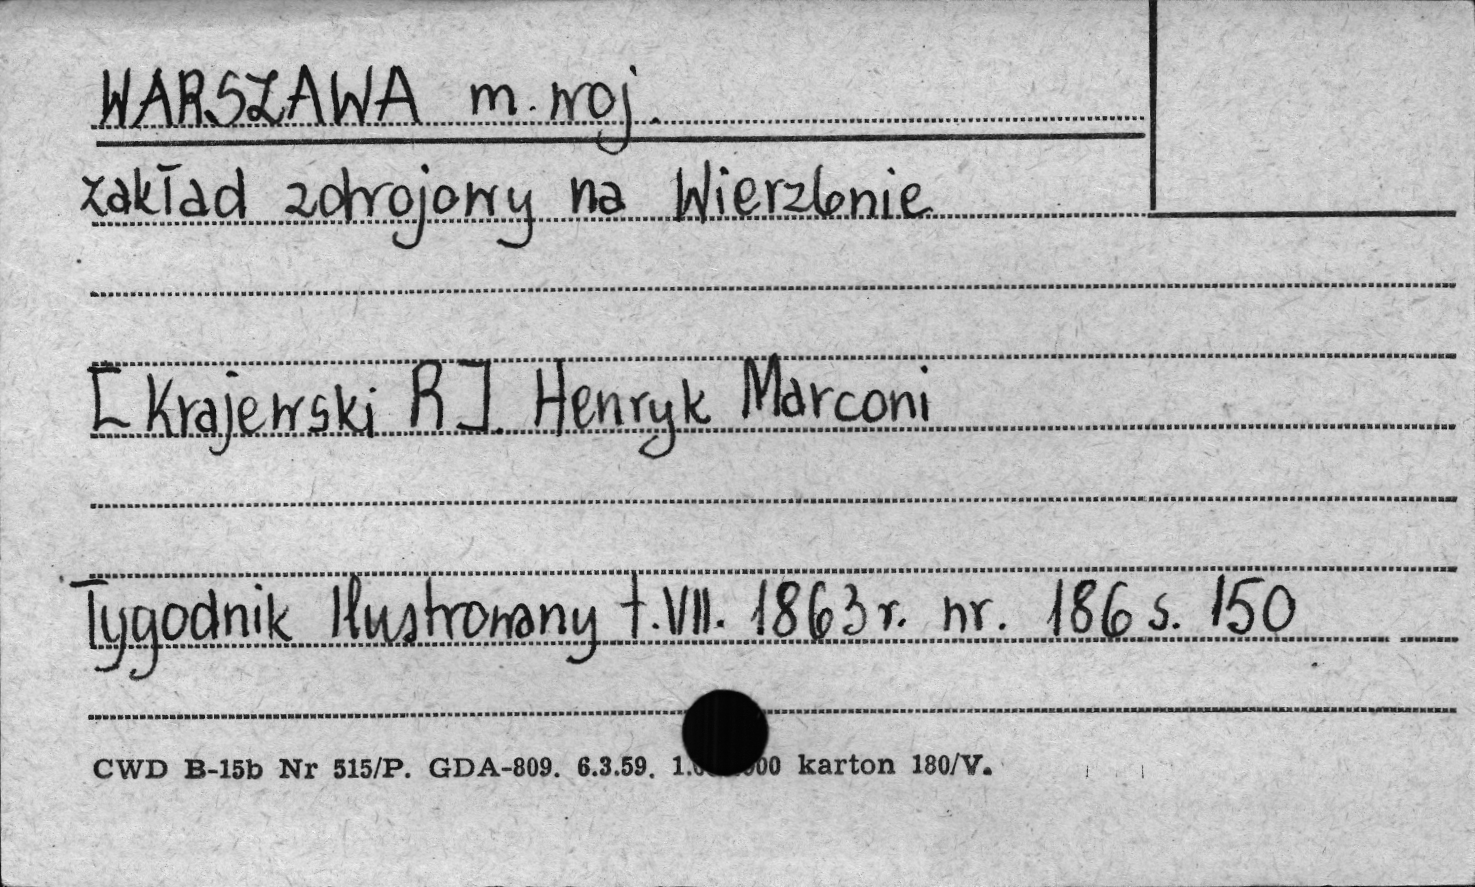 WARSZAWA m. woj.
zakład zdrojowy na Wierzbnie
[Krajewski R]. Henryk Marconi
Tygodnik Ilustrowany t.VII. 1863 r. nr. 186 s. 150
CWD B-15b Nr 515/P. GDA-809. 6.3.59. karton 180/V.